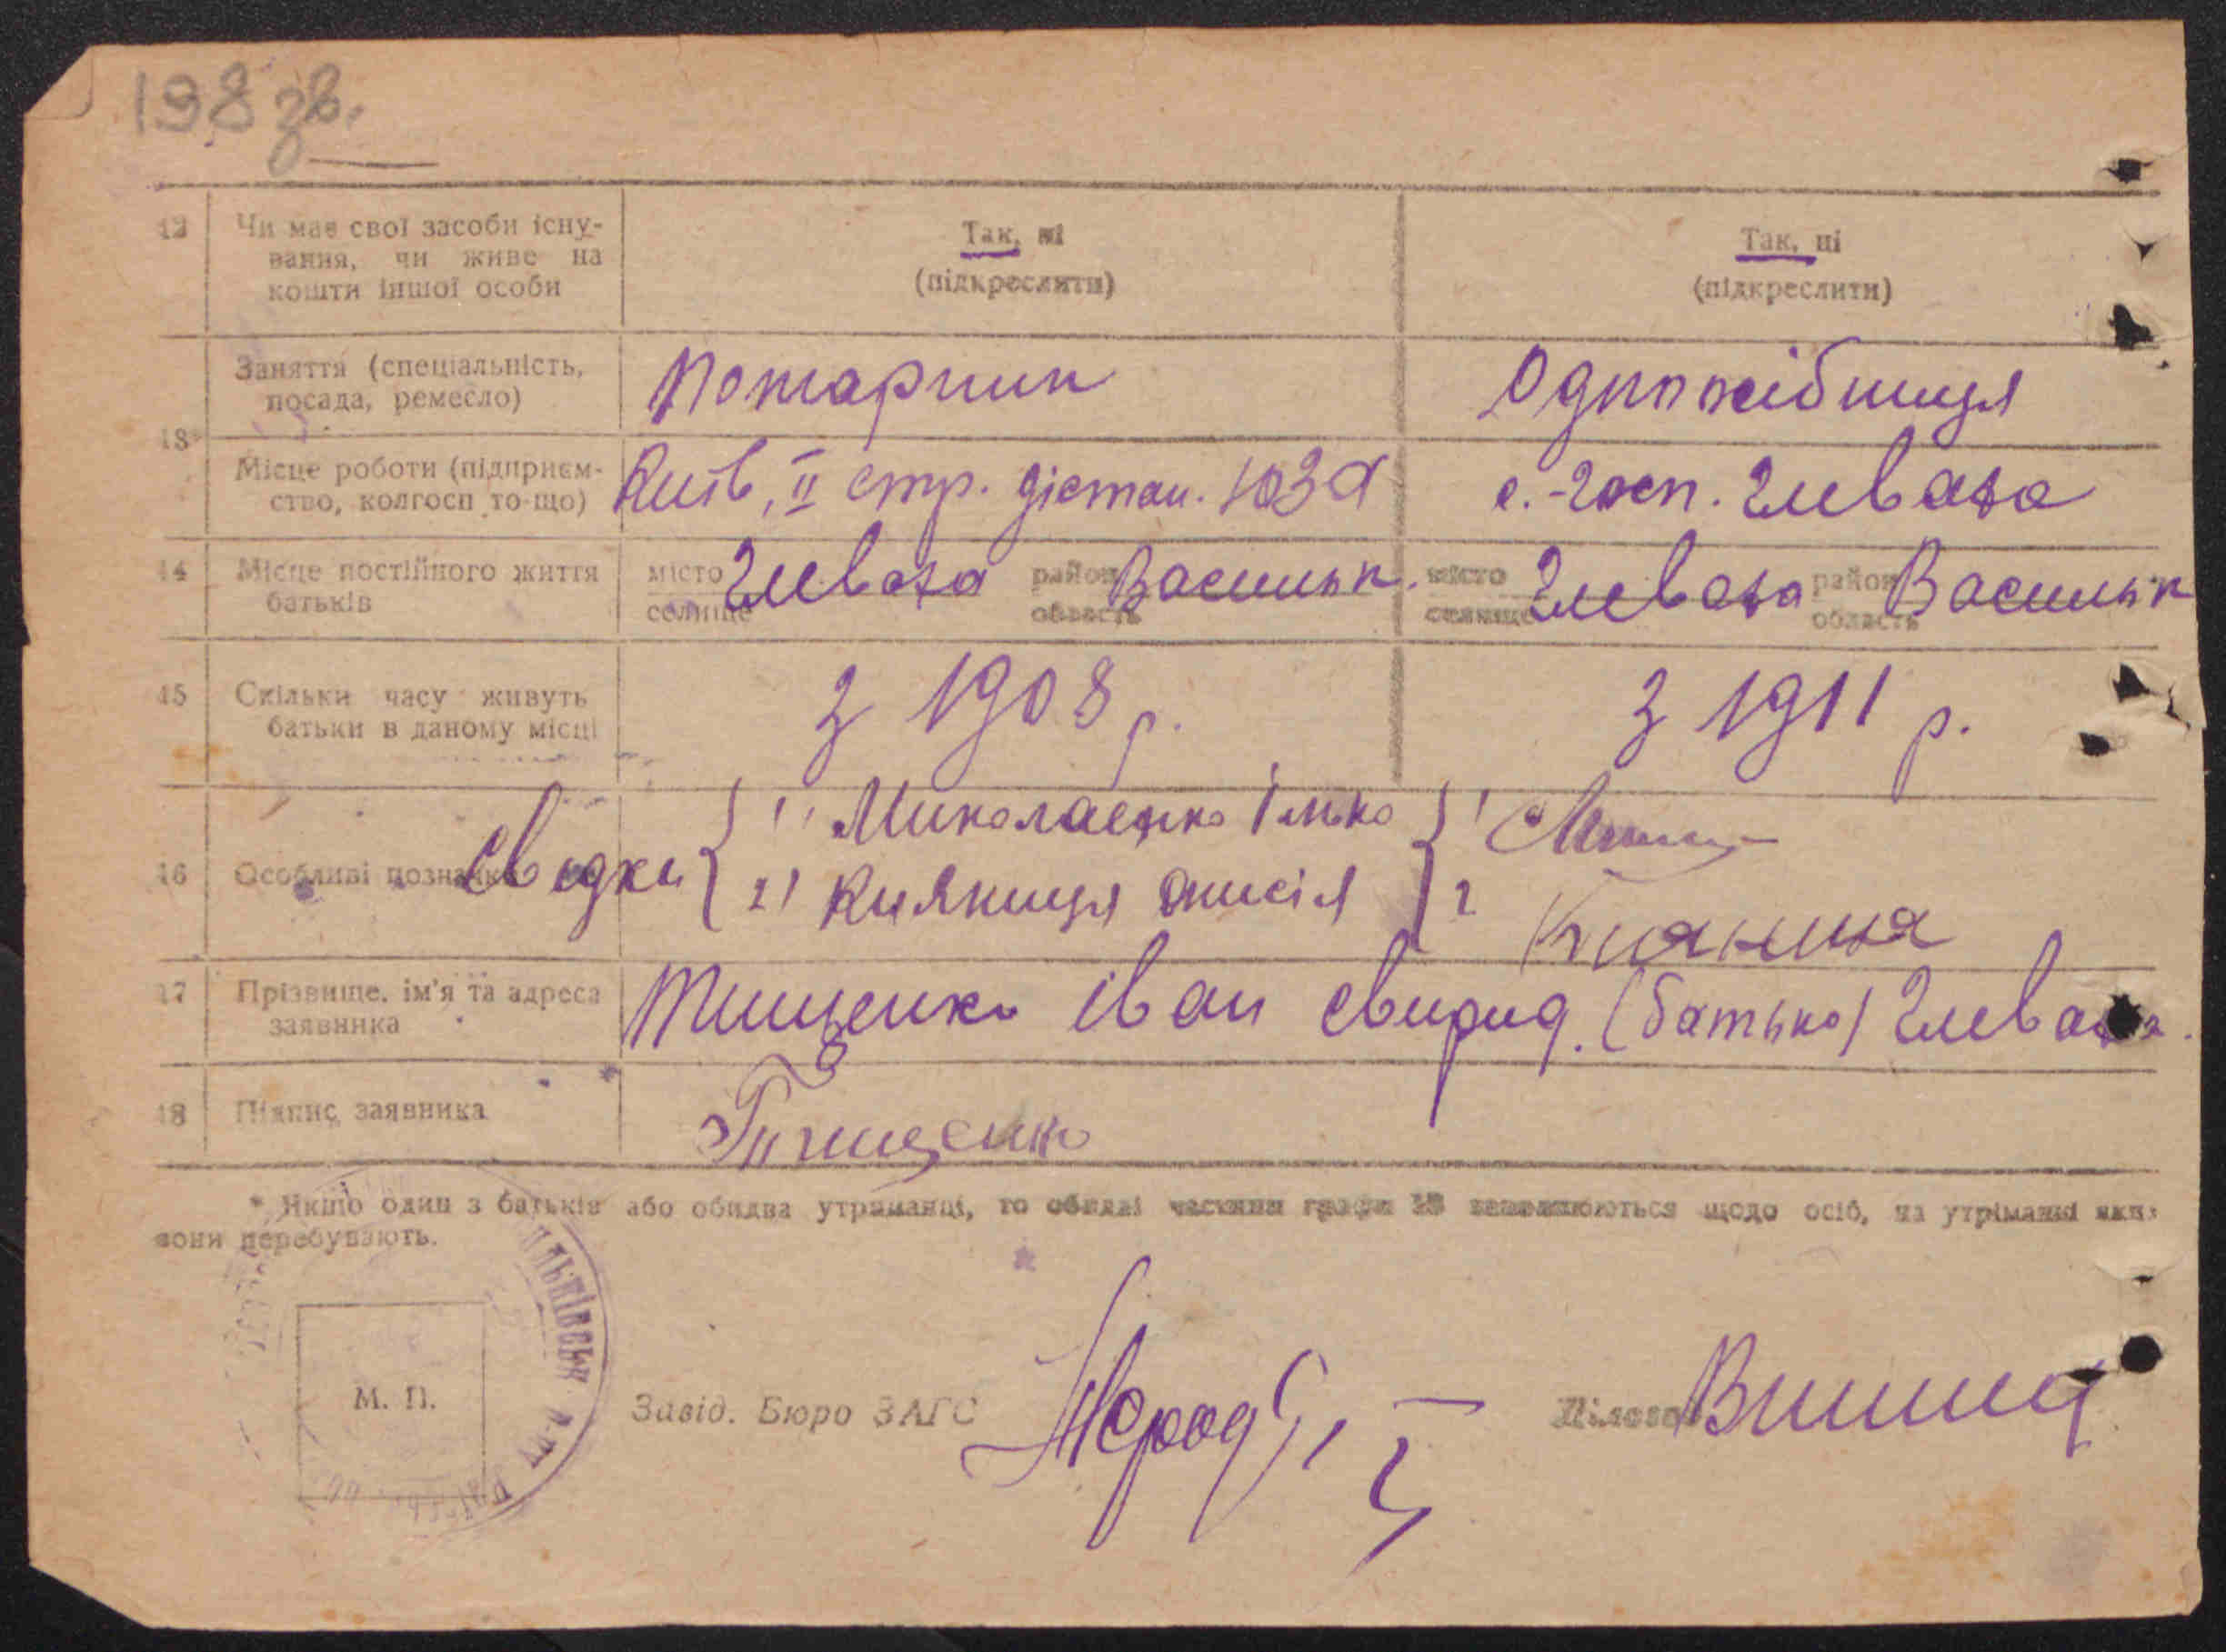 198 зв.
12 Чи має свої засоби існу- Так, ні Так, ні
вання, чи живе на (підкреслити) (підкреслити)
кошти іншої особи
Заняття (спеціальність, Пожарник Одноосібниця
посада, ремесло)
13
Місце роботи (підприєм- Київ, II стр. дістан. ЮЗД с.-госп. Глеваха
ство, колгосп то-що)
14 Місце постійного життя місто Глеваха район Васильк. місто Глеваха район Васильк
батьків селище область селище область
15 Скільки часу живуть з 1908 р. з 1911 р.
батьки в даному місці
16 Особливі познанки Свідки 1) Миколаєнко Ілько 1
2) Кияниця Онисія 2 Кияниця
17 Прізвище, ім'я та адреса Тищенко Іван Свирид. (батько) Глеваха.
заявника
18 Підпис заявника Тищенко
* Якщо один з батьків або обидва утриманці, то обидві частини графи 13 заповнюються щодо осіб, на утриманні яких
вони перебувають.
М. П.
Завід. Бюро ЗАГС Діловод